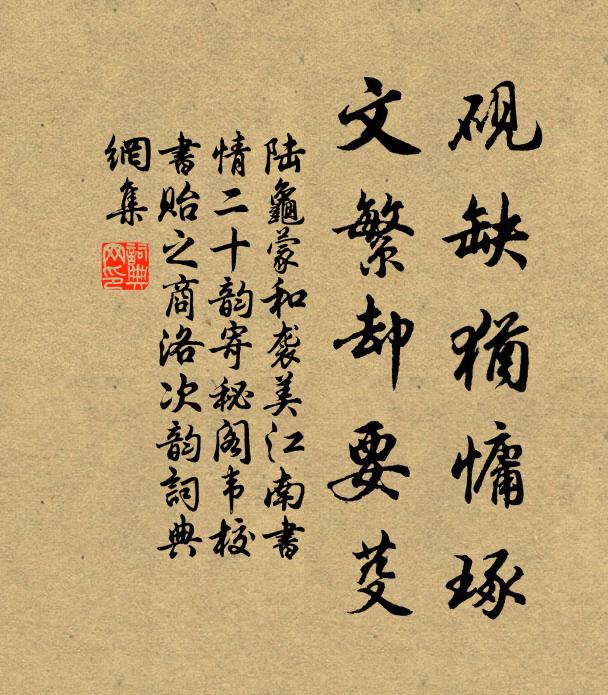 砚缺犹慵琢
文繁却要芟
陆龟蒙和袭美江南书
情二十韵寄秘阁韦校
书贻之商洛次韵詞典
網集
詞典
网印